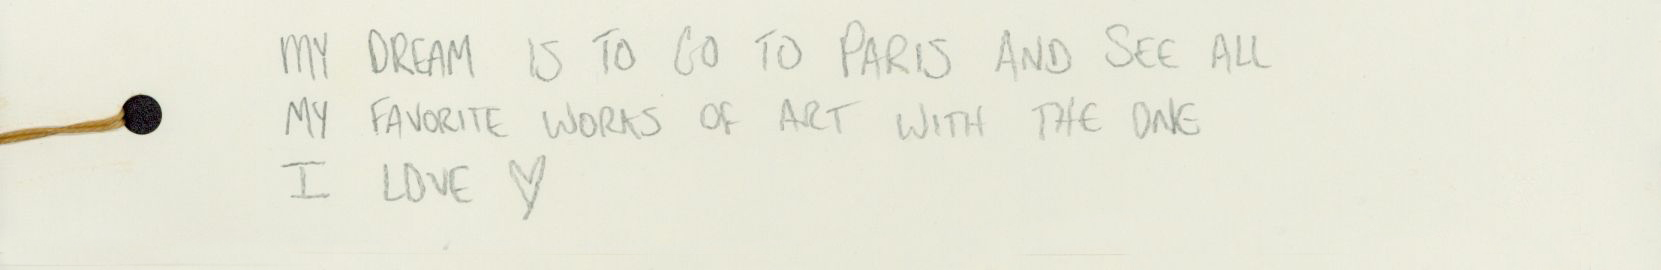 MY DREAM IS TO GO TO PARIS AND SEE ALL
MY FAVORITE WORKS OF ART WITH THE ONE
I LOVE ♡